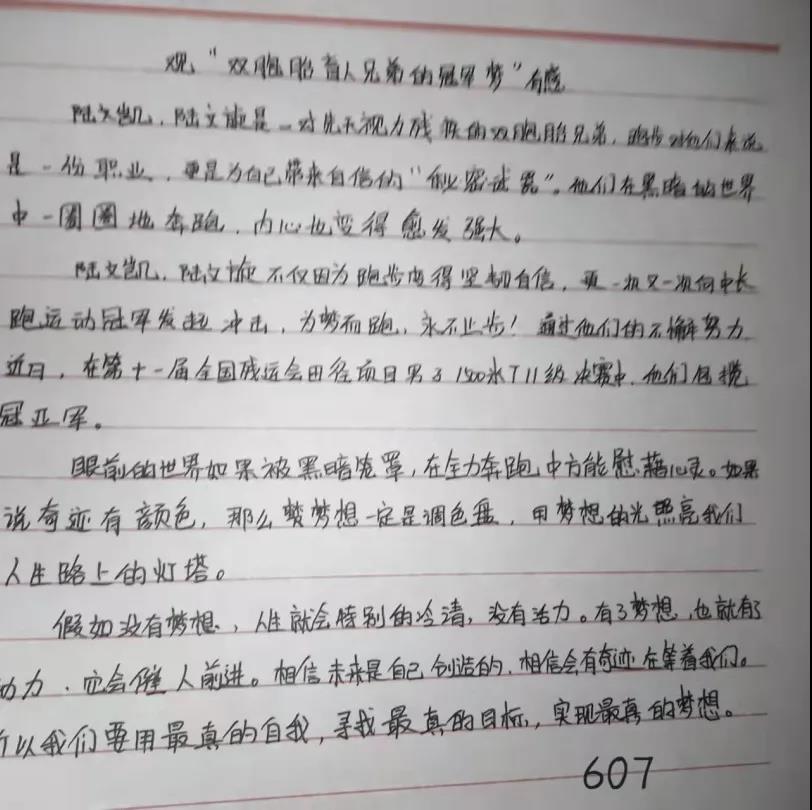 观“双胞胎盲人兄弟的冠军梦”有感
陆文凯、陆文旗是一对先天视力残疾的双胞胎兄弟，跑步对他们来说
是一份职业，更是为自己带来自信的“秘密武器”。他们在黑暗的世界
中一圈圈地奔跑，内心也变得愈发强大。
陆文凯、陆文旗不仅因为跑步变得坚韧自信，更一次又一次向中长
跑运动冠军发起冲击，为梦而跑，永不止步！通过他们的不懈努力
近日，在第十一届全国残运会田径项目男子1500米T11级决赛中，他们包揽
冠亚军。
眼前的世界如果被黑暗笼罩，在全力奔跑中方能慰藉心灵。如果
说奇迹有颜色，那么梦想一定是调色盘，用梦想的光照亮我们
人生路上的灯塔。
假如没有梦想，人生就会特别的冷清，没有活力。有了梦想，也就有了
动力，它会催人前进。相信未来是自己创造的，相信会有奇迹在等着我们。
所以我们要用最真的自我，寻找最真的目标，实现最真的梦想。
607